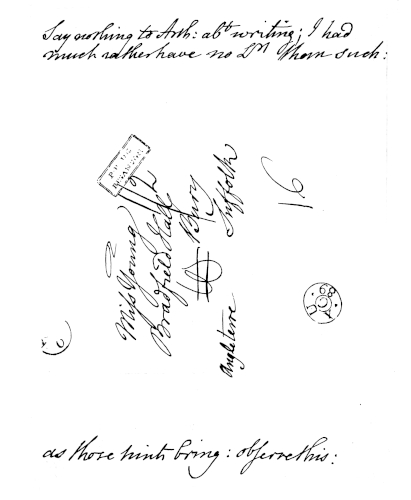 Say nothing to Arth: abt writing; I had
much rather have no Lrs than such:
P.P. DE
BESANÇON
Miss Young
Bradfield Hall
Bury
Suffolk
Angleterre
16
as those hints bring: observe this: